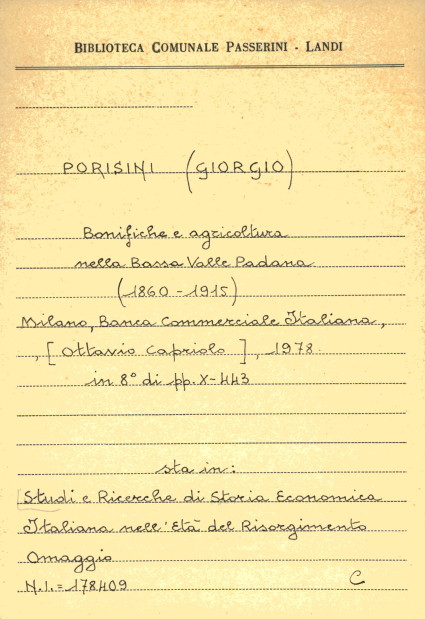 BIBLIOTECA COMUNALE PASSERINI - LANDI
PORISINI (GIORGIO)
Bonifiche e agricoltura
nella Bassa Valle Padana
(1860-1915)
Milano, Banca Commerciale Italiana,
, [Ottavio Capriolo], 1978
in 8° di pp. X-443
sta in:
Studi e Ricerche di Storia Economica
Italiana nell'Età del Risorgimento
Omaggio
N.I.=178409 C